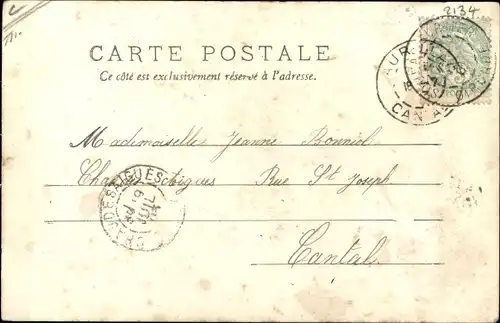 2134
CARTE POSTALE
Ce côté est exclusivement réservé à l'adresse.
Mademoiselle Jeanne Bonniol
Chaudesaigues Rue St Joseph
Cantal
CHAUDESAIGUES
CANTAL